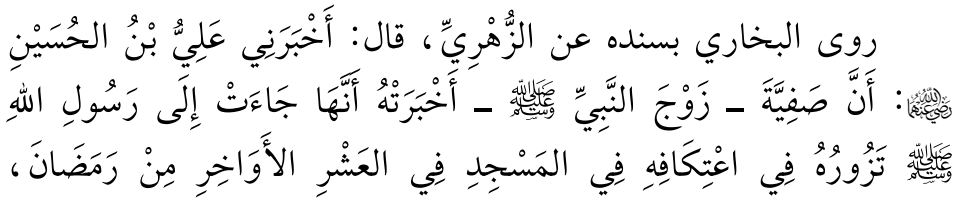 روى البخاري بسنده عن الزُّهْرِيِّ، قال: أَخْبَرَنِي عَلِيُّ بْنُ الحُسَيْنِ
رضي الله عنهما: أَنَّ صَفِيَّةَ ـ زَوْجَ النَّبِيِّ ﷺ ـ أَخْبَرَتْهُ أَنَّهَا جَاءَتْ إِلَى رَسُولِ اللهِ
ﷺ تَزُورُهُ فِي اعْتِكَافِهِ فِي المَسْجِدِ فِي العَشْرِ الأَوَاخِرِ مِنْ رَمَضَانَ،